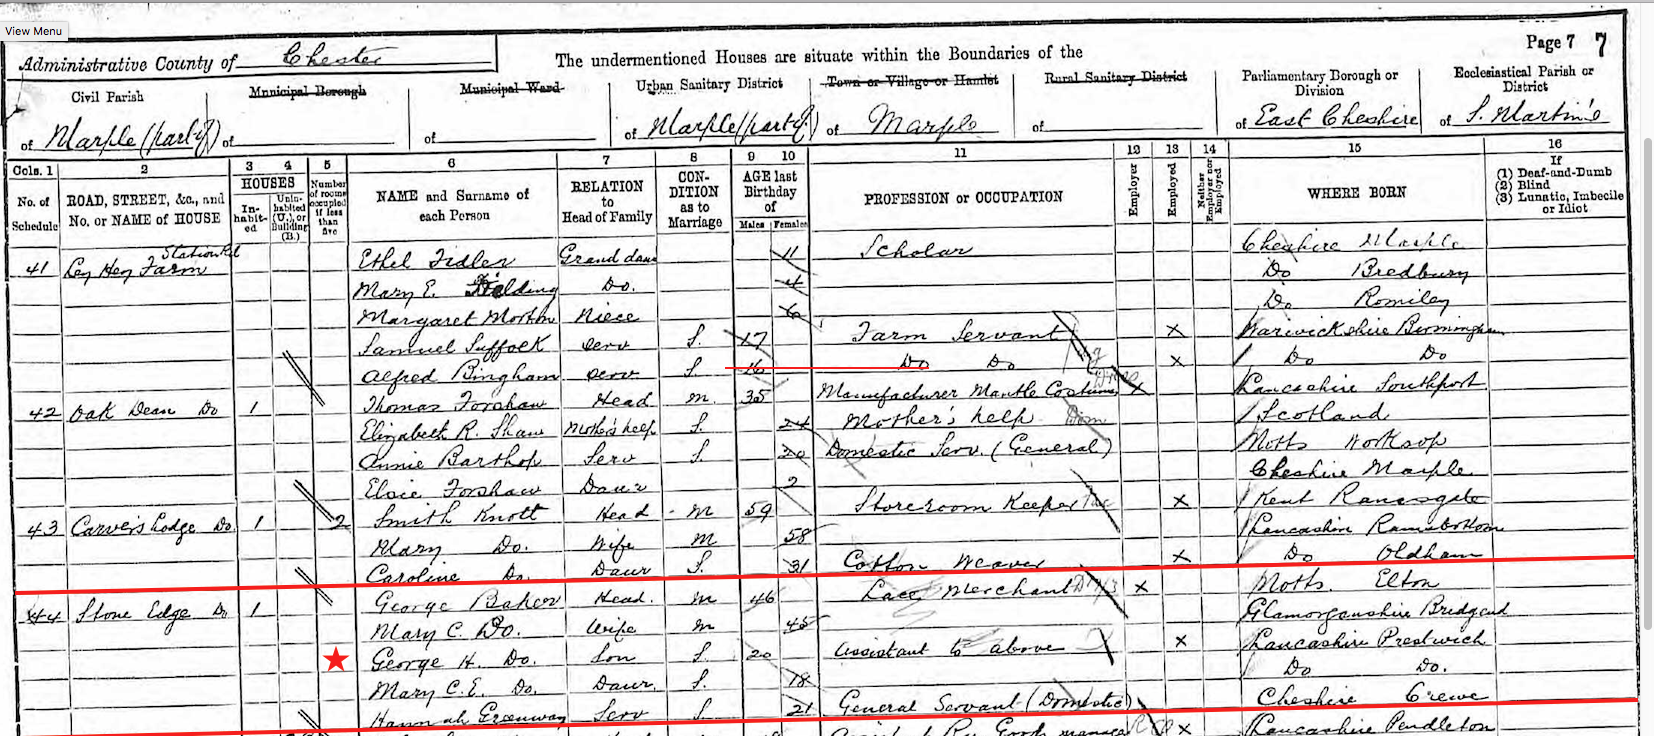 View Menu
Page 7 7
Administrative County of Chester The undermentioned Houses are situate within the Boundaries of the
Civil Parish Municipal Borough Municipal Ward Urban Sanitary District Town or Village or Hamlet Rural Sanitary District Parliamentary Borough or Division Ecclesiastical Parish or District
of Marple (part of) of of of Marple (part of) of Marple of of East Cheshire of S. Martin's
Cols. 1 2 3 4 5 6 7 8 9 10 11 12 13 14 15 16
No. of Schedule ROAD, STREET, &c., and No. or NAME of HOUSE HOUSES Inhabited Uninhabited (U.) or Building (B.) Number of rooms occupied if less than five NAME and Surname of each Person RELATION to Head of Family CONDITION as to Marriage AGE last Birthday of Males Females PROFESSION or OCCUPATION Employer Employed Neither Employer nor Employed WHERE BORN If (1) Deaf-and-Dumb (2) Blind (3) Lunatic, Imbecile or Idiot
41 Ley Hey Farm Station Rd Ethel Fidler Grand daur 11 Scholar Cheshire Marple
Mary E. Do. 4 Do Bredbury
Margaret Morton Niece 6 Do Romiley
Samuel Suffolk Serv S. 17 Farm Servant X Warwickshire Birmingham
Alfred Bingham Serv S. 16 Do Do X Do Do
42 Oak Dean Do 1 Thomas Forshaw Head M. 35 Manufacturer Mantle Costume X Lancashire Southport
Elizabeth R. Shaw Mother's help S. 24 Mother's help Dom Scotland
Annie Barthop Serv S. 20 Domestic Serv. (General) Notts Worksop
Elsie Forshaw Daur 2 Cheshire Marple
43 Carver's Lodge Do. 1 2 Smith Knott Head M 59 Storeroom Keeper X Kent Ramsgate
Mary Do. Wife M 58 Lancashire Ramsbottom
Caroline Do. Daur S. 31 Cotton Weaver X Do Oldham
44 Stone Edge Do 1 George Baker Head. M 46 Lace Merchant X Notts. Elton
Mary C. Do. Wife M 45 Glamorganshire Bridgend
George H. Do. Son S. 20 Assistant to above X Lancashire Prestwich
Mary C.E. Do. Daur. S. 18 Do Do.
Hannah Greenway Serv S. 21 General Servant (Domestic) Cheshire Crewe
X Lancashire Pendleton